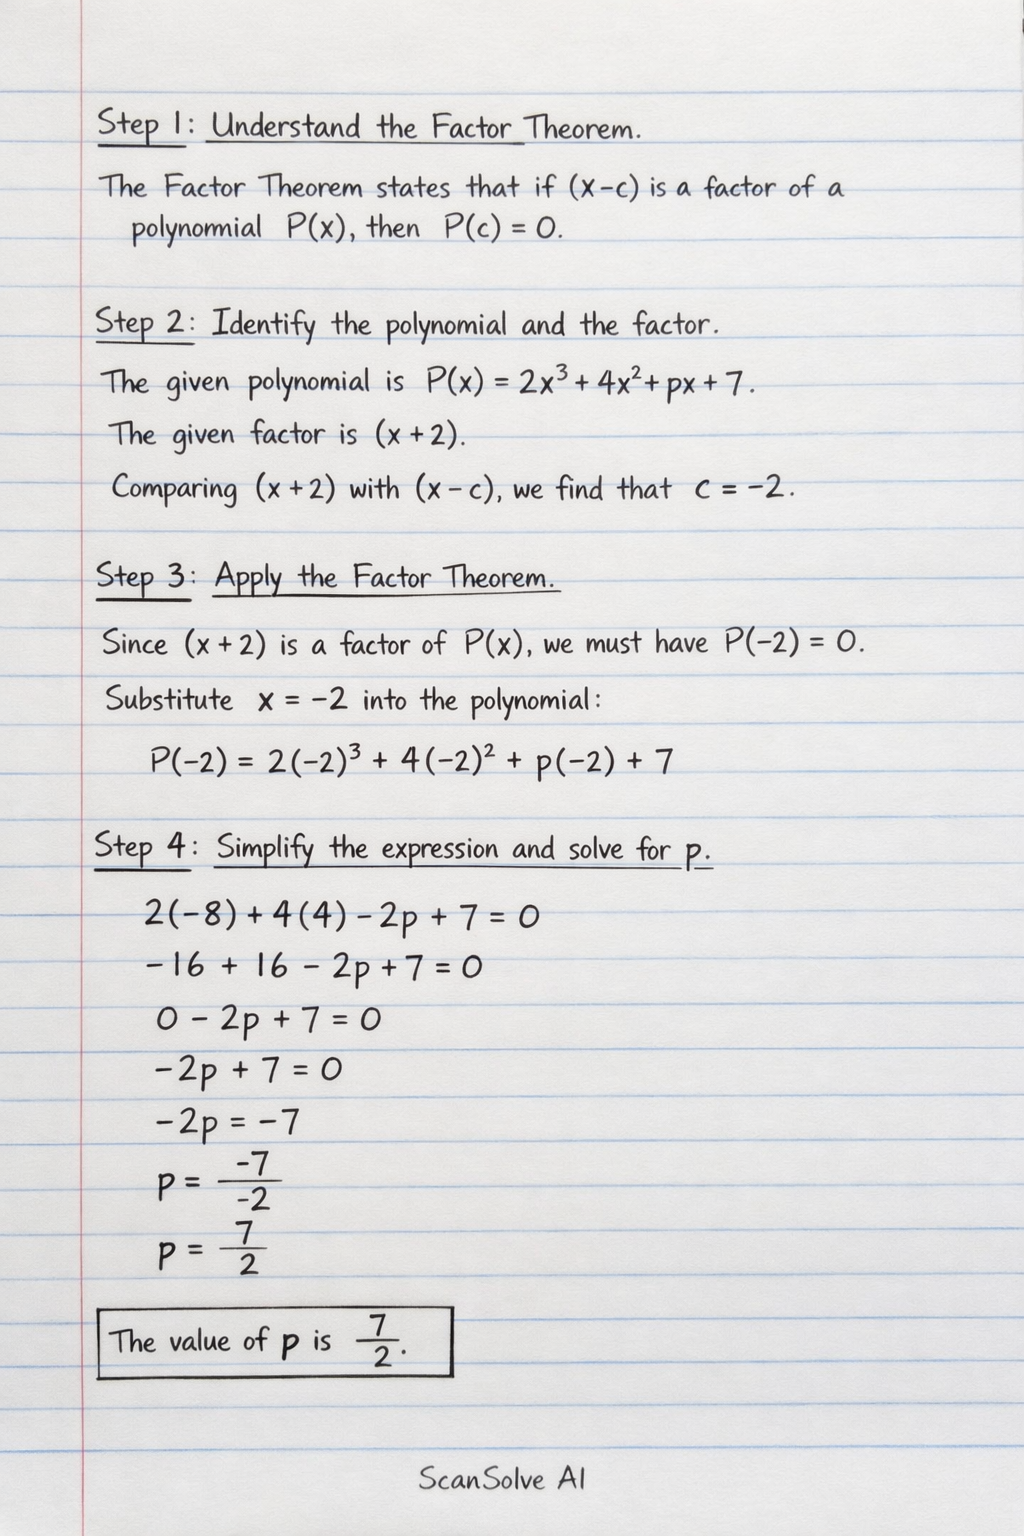 Step 1: Understand the Factor Theorem.
The Factor Theorem states that if (x-c) is a factor of a
polynomial P(x), then P(c) = 0.
Step 2: Identify the polynomial and the factor.
The given polynomial is P(x) = 2x³ + 4x² + px + 7.
The given factor is (x + 2).
Comparing (x + 2) with (x - c), we find that c = -2.
Step 3: Apply the Factor Theorem.
Since (x + 2) is a factor of P(x), we must have P(-2) = 0.
Substitute x = -2 into the polynomial:
P(-2) = 2(-2)³ + 4(-2)² + p(-2) + 7
Step 4: Simplify the expression and solve for p.
2(-8) + 4(4) - 2p + 7 = 0
-16 + 16 - 2p + 7 = 0
0 - 2p + 7 = 0
-2p + 7 = 0
-2p = -7
p = -7/-2
p = 7/2
The value of p is 7/2.
ScanSolve AI